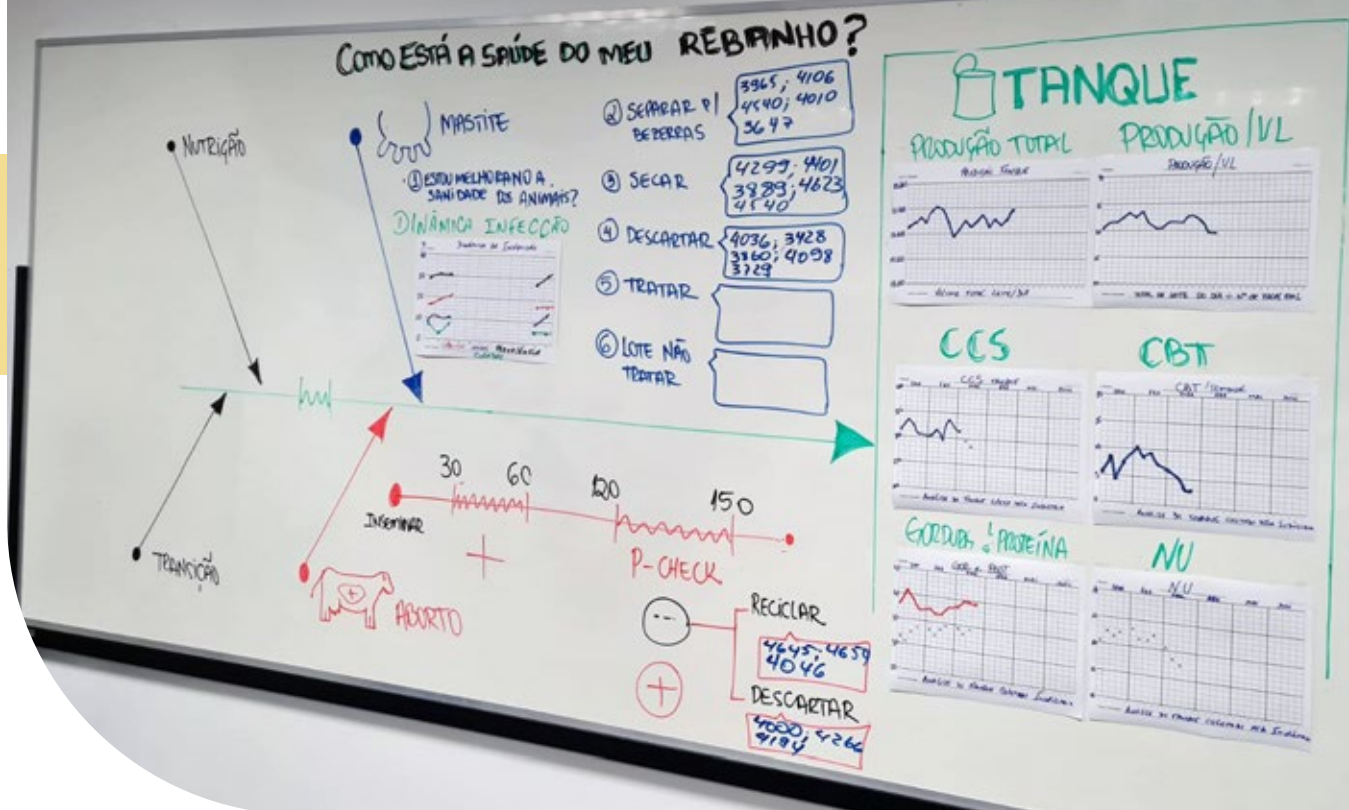 COMO ESTÁ A SAÚDE DO MEU REBANHO?
NUTRIÇÃO
MASTITE
① ESTOU MELHORANDO A
SANIDADE DOS ANIMAIS?
DINÂMICA INFECÇÃO
② SEPARAR P/
BEZERRAS
3965; 4106
4540; 4010
3647
③ SECAR
4299; 4401
3889; 4623
4540
④ DESCARTAR
4036; 3428
3860; 4098
3729
⑤ TRATAR
⑥ LOTE NÃO
TRATAR
TRANSIÇÃO
ABORTO
INSEMINAR
30
60
120
150
+
P-CHECK
--
+
RECICLAR
4645; 4659
4046
DESCARTAR
4000; 4266
4194
TANQUE
PRODUÇÃO TOTAL
PRODUÇÃO/VL
PRODUÇÃO/VL
CCS
CBT
CCS
CBT
GORDURA E PROTEÍNA
NU
NU